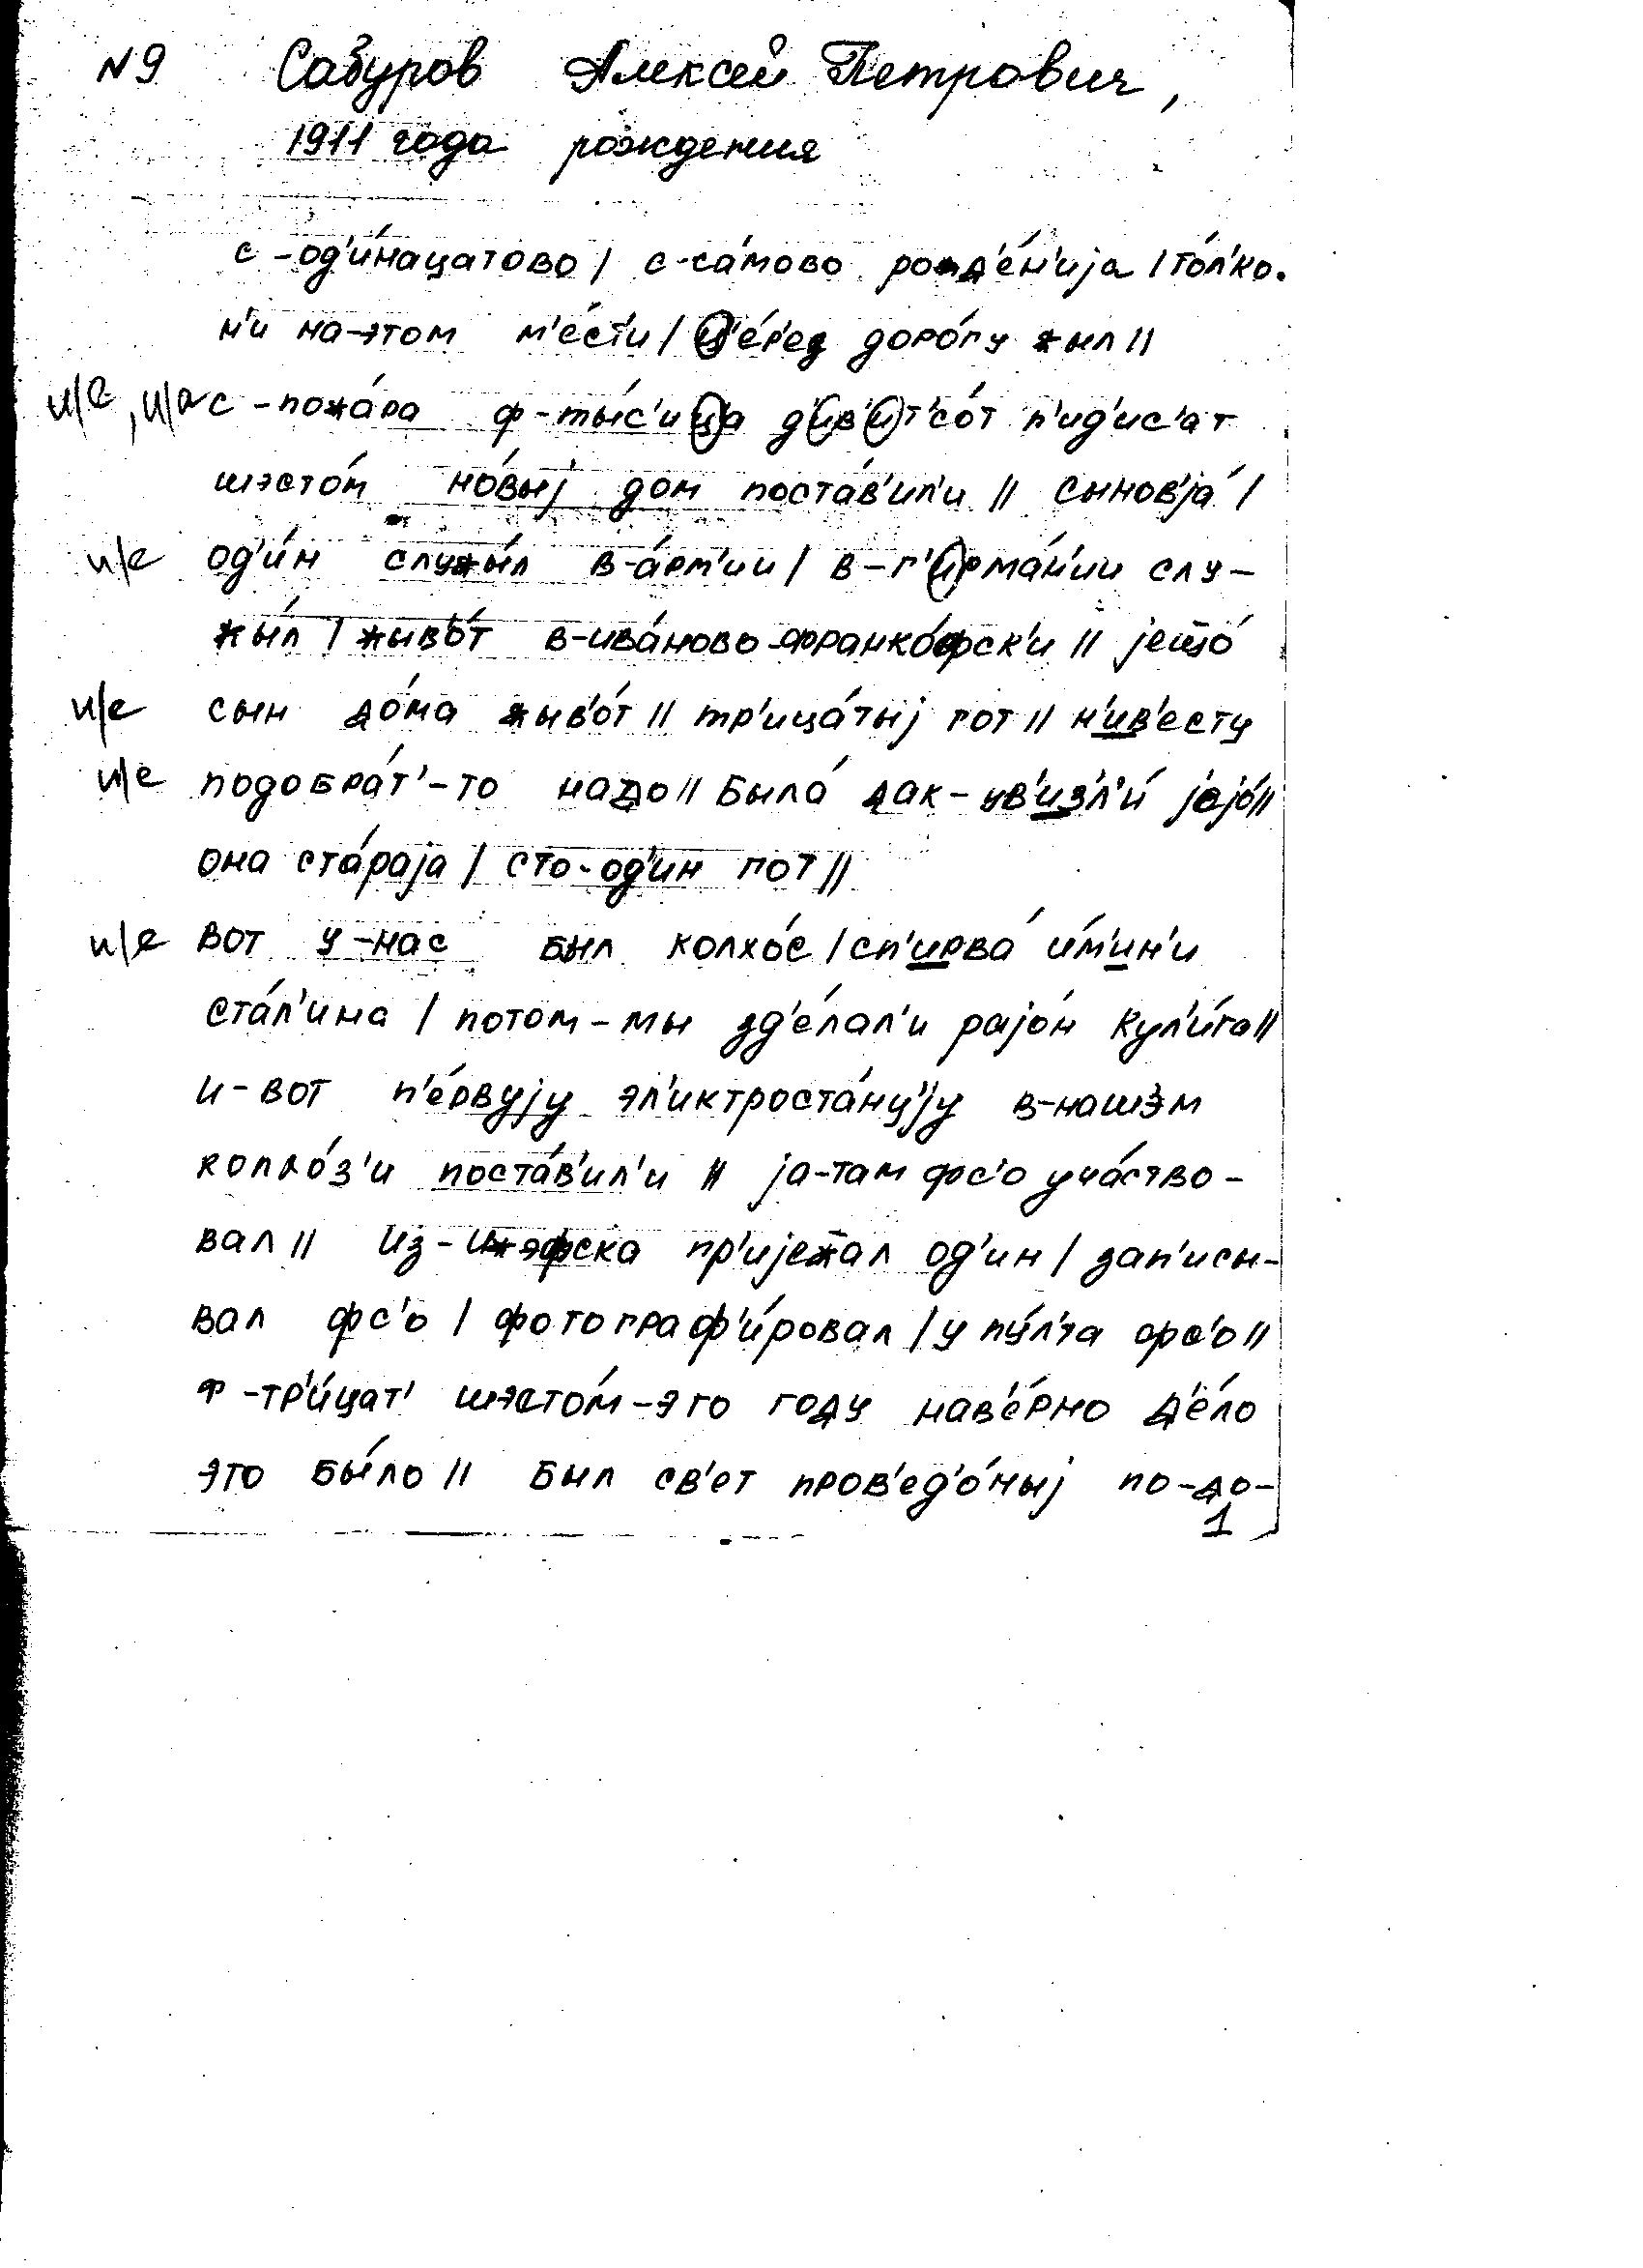 N9 Сабуров Алексей Петрович,
1911 года рождения
с-од'и́нацатово / с-са́мово рожд'е́н'ија / то́л'ко.
н'и на-этом м'е́с'т'и / ц'е́р'ед доро́гу жыл //
и/е, и/а с-пожа́ра ф-ты́с'ица д'ив'ит'со́т п'ид'ис'ат
шэсто́м но́выј дом поста́в'ил'и // сынов'ја́ /
и/е од'и́н служы́л в-а́рм'ии / в-г'ирма́н'ии слу-
жы́л / жыв'о́т в-ива́ново-франко́фск'и // јешо́
и/е сын до́ма жыв'о́т // тр'ица́тыј гот // н'ив'есту
и/е подобра́т'-то надо // была́ дак-ув'изл'и́ јејо́ //
она ста́раја / сто-од'ин гот //
и/е вот у-нас был колхо́с / сп'ирва́ и́м'ин'и
ста́л'ина / потом-мы зд'е́лал'и рајо́н кул'и́га //
и-вот п'е́рвују эл'иктроста́нц'ју в-нашэм
колхо́з'и поста́в'ил'и // ја-там фс'о уча́ство-
вал // из-ижэфска пр'ијежал од'ин / зап'исы-
вал фс'о / фотограф'и́ровал / у пу́л'та фс'о //
ф-тр'и́цат' шэсто́м-эго году нав'е́рно д'е́ло
это бы́ло // был св'ет пров'ед'о́ныј по-до-
1